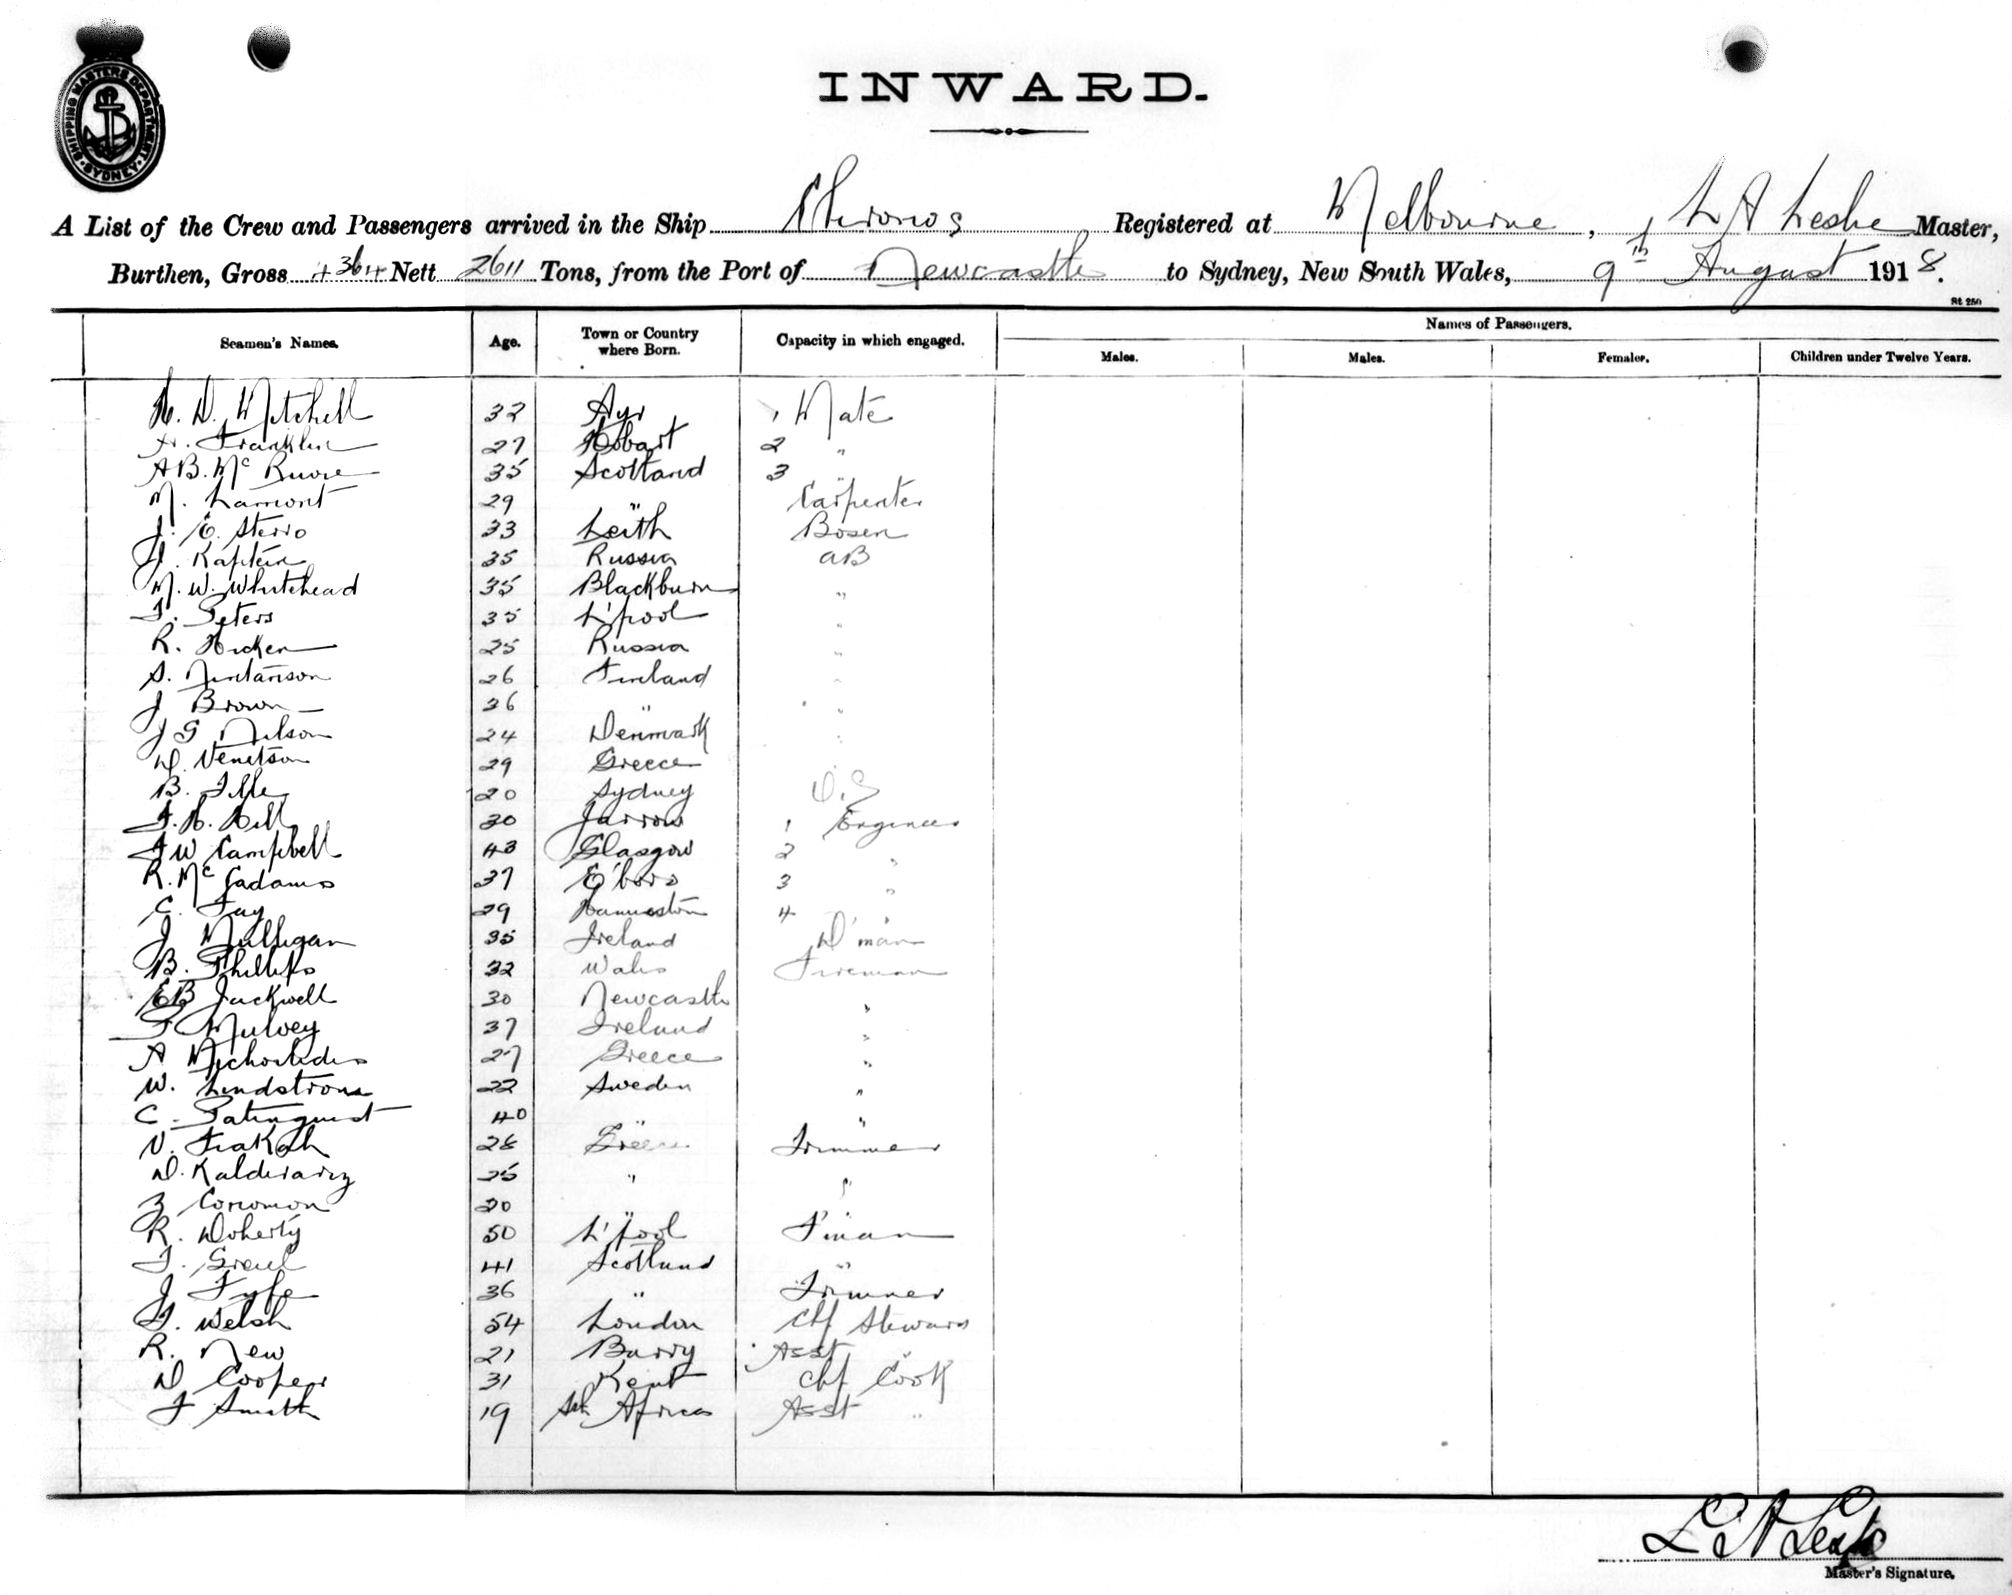 SHIPPING MASTERS DEPARTMENT SYDNEY
INWARD.
A List of the Crew and Passengers arrived in the Ship Registered at Melbourne, L A Leslie Master,
Burthen, Gross 4364 Nett 2611 Tons, from the Port of Newcastle to Sydney, New South Wales, 9th August 1918.
St 250
Seamen's Names. Age. Town or Country where Born. Capacity in which engaged. Names of Passengers.
Males. Males. Females. Children under Twelve Years.
D. Mitchell 32 Ayr 1 Mate
Franklin 27 Hobart 2 "
A B. Mc 35 Scotland 3 "
M. Lamont 29 " Carpenter
J. E. 33 Leith Bosen
Kaptein 35 Russia AB
M. W. Whitehead 35 Blackburn "
F. Peters 35 L'pool "
R. 25 Russia "
S. 26 Finland "
J Brown 36 " "
J G Nelson 24 Denmark "
D. Venetson 29 Greece "
B. 20 Sydney O.S
F. H. 30 Jarrow 1 Engineer
F W Campbell 43 Glasgow 2 "
R. Mc 37 3 "
C. Fay 29 4 "
J Mulligan 35 Ireland D'man
B. Phillips 32 Wales Fireman
E B 30 Newcastle "
F Mulvey 37 Ireland "
A 27 Greece "
W. Lindstrom 22 Sweden "
C. 40 " "
N. 28 Greece Trimmer
D. 25 " "
20 " "
R. Doherty 50 L'pool F'man
41 Scotland "
J Fyfe 36 " Trimmer
Welsh 54 London Chf Steward
R. New 21 Barry Asst "
D Cooper 31 Kent Chf Cook
F Smith 19 Sth Africa Asst "
L A Leslie
Master's Signature.